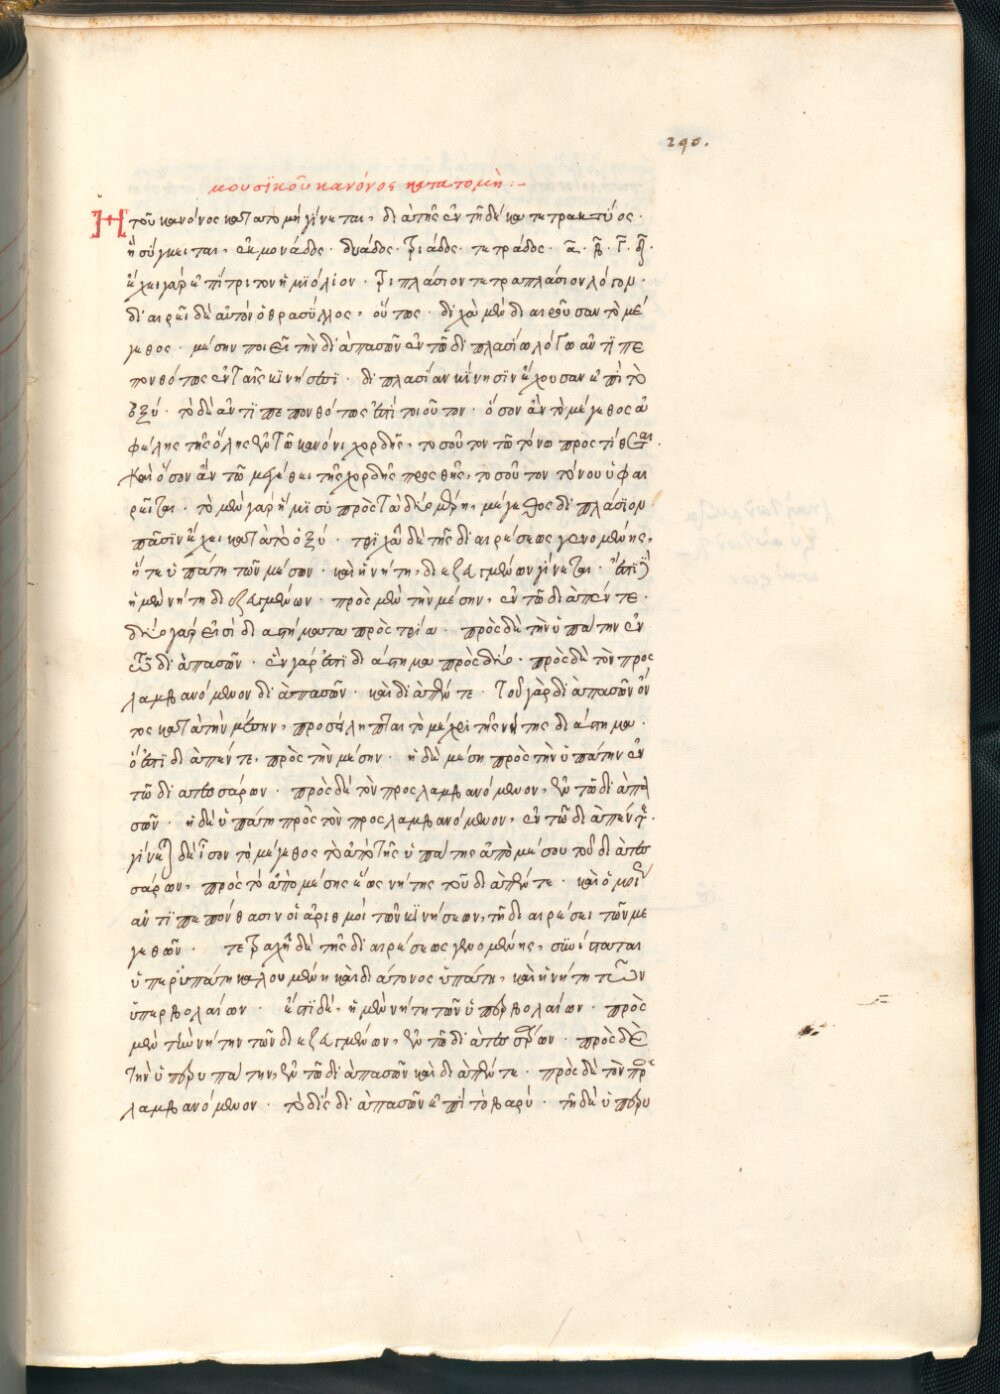 290.
μουσϊκοῦ κανόνος κατατομὴ :-
Ἡ τοῦ κανόνος κατατομὴ γίνεται, διὰ τῆς ἐν τῇ δεκα τετρακτύος ·
ἣ σύγκειται, ἐκ μονάδος · δυάδος · τριάδος · τετράδος · α · β · γ · δ ·
ἔχει γὰρ ἐπίτριτον ἡμϊόλιον · τριπλάσιον τετραπλάσιον λόγον ·
διαιρεῖ δὲ αὐτὸν ὁ θρασύλλος, οὕτως · δίχα μὲν διαιρεθεῦσαν τὸ μέ
γεθος · μέσην ποιεῖ τὴν διὰ πασῶν ἐν τῶ διπλασίω λόγω ἀντϊπε
πονθότως ἐν ταῖς κϊνήσεσι · διπλασίαν κίνησϊν ἔχουσαν ἐπὶ τὸ
ὀξύ · τὸ δὲ ἀντϊπεπονθότως ἐστὶ τοιοῦτον · ὅσον ἂν τὸ μέγεθος ἀ
φέλης τῆς ὅλης ἐν τῶ κανόνι χορδῆς, τοσοῦτον τῶ τόνω προστίθεται ·
Καὶ ὅσον ἂν τῶ μεγέθει τῆς χορδῆς προσθῆς, τοσοῦτον τοῦ τόνου ὑφαι
ρεῖται · τὸ μὲν γὰρ ἥμϊσυ πρὸς τὰ δύο μέρη, μέγεθος διπλάσϊον
πᾶσϊν ἔχει κατὰ τὸ ὀξύ · τρϊχῆ δὲ τῆς διαιρέσεως γενομένης,
ἥτε ὑπάτη τῶν μέσων · καὶ ἡ νήτη, διεζευγμένων γίνεται · ἐστὶ
ἡ μὲν νήτη διεζευγμένων · πρὸς μὲν τὴν μέσην, ἐν τῶ διαπέντε ·
δύο γάρ εἰσὶ διαστήματα πρὸς τρία · πρὸς δὲ τὴν ὑπάτην ἐν
τῶ διὰ πασῶν · ἓν γάρ ἐστι διάστημα πρὸς δύο · πρὸς δὲ τὸν προς
λαμβανόμενον διὰ πασῶν · καὶ διὰ πέντε · τοῦ γὰρ διὰ πασῶν ὄν
τος κατὰ τὴν μέσην, προσείληπται τὸ μέχρι τῆς νήτης διάστημα ·
ὅ ἐστι διὰ πέντε, πρὸς τὴν μέσην · ἡ δὲ μέση πρὸς τὴν ὑπάτην ἐν
τῶ διὰ τεσσάρων · πρὸς δὲ τὸν προςλαμβανόμενον, ἐν τῶ διὰ πα
σῶν · ἡ δὲ ὑπάτη πρὸς τὸν προςλαμβανόμενον, ἐν τῶ διὰ πέντε ·
γίνεται δὲ ἴσον τὸ μέγεθος τὸ ἀπὸ τῆς ὑπάτης ἀπὸ μέσου τοῦ διὰ τεσ
σάρων, πρὸς τὸ ἀπὸ μέσης ἕως νήτης τοῦ διὰ πέντε · καὶ ὁμοί
ἀντϊπεπόνθασιν οἱ ἀριθμοὶ τῶν κϊνήσεων, τῇ διαιρέσει τῶν με
γεθῶν · τετραχῇ δὲ τῆς διαιρέσεως γενομένης, συνίσταται
ὑπερϋπάτη καλουμένη καὶ διάτονος ὑπάτη, καὶ ἡ νήτη τῶν
ὑπερβολαίων · ἔστϊ δὲ, ἡ μὲν νήτη τῶν ὑπερβολαίων · πρὸς
μὲν τὴν νήτην τῶν διεζευγμένων, ἐν τῶ διὰ τεσσάρων · πρὸς δὲ
τὴν ὑπερυπάτην, ἐν τῶ διὰ πασῶν καὶ διὰ πέντε · πρὸς δὲ τὸν προς
λαμβανόμενον · τὸ δὶς διὰ πασῶν ἐπὶ τὸ βαρύ · τῇ δὲ ὑπερυ